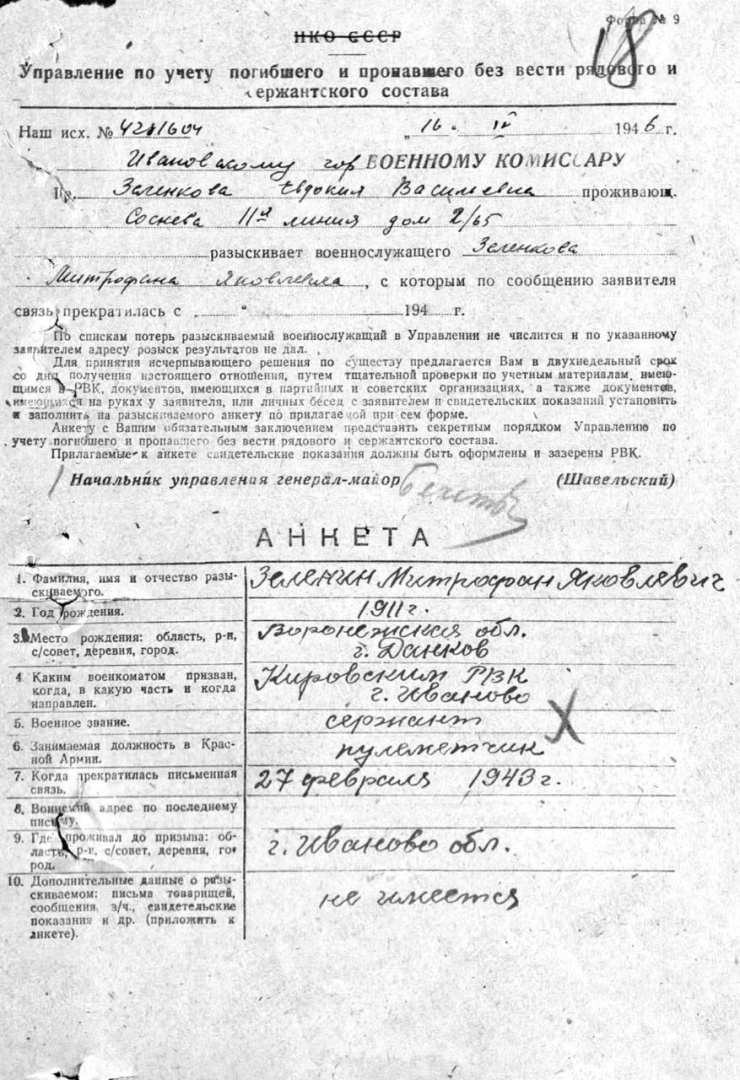 Форма № 9
18
НКО СССР
Управление по учету погибшего и пропавшего без вести рядового и
сержантского состава
Наш исх. № 4211604 „16. IV 1946 г.
Ивановскому гор ВОЕННОМУ КОМИССАРУ
Гр. Зеленкова Евдокия Васильевна проживающ.
Соснева 11я линия дом 2/65
разыскивает военнослужащего Зеленкова
Митрофана Яковлевича, с которым по сообщению заявителя
связь прекратилась с „ “ 194 г.
По спискам потерь разыскиваемый военнослужащий в Управлении не числится и по указанному
заявителем адресу розыск результатов не дал.
Для принятия исчерпывающего решения по существу предлагается Вам в двухнедельный срок
со дня получения настоящего отношения, путем тщательной проверки по учетным материалам, имею-
щимся в РВК, документов, имеющихся в партийных и советских организациях, а также документов,
имеющихся на руках у заявителя, или личных бесед с заявителем и свидетельских показаний установить
и заполнить на разыскиваемого анкету по прилагаемой при сем форме.
Анкету с Вашим обязательным заключением представить секретным порядком Управлению по
учету погибшего и пропавшего без вести рядового и сержантского состава.
Прилагаемые к анкете свидетельские показания должны быть оформлены и заверены РВК.
Начальник управления генерал-майор (Шавельский)
АНКЕТА
1. Фамилия, имя и отчество разы-
скиваемого. Зеленин Митрофан Яковлевич
2. Год рождения. 1911 г.
3. Место рождения: область, р-н, Воронежская обл.
с/совет, деревня, город. г. Данков
4 Каким военкоматом призван, Кировским РВК
когда, в какую часть и когда г. Иваново
направлен.
5. Военное звание. сержант
6. Занимаемая должность в Крас-
ной Армии. пулеметчик
7. Когда прекратилась письменная 27 февраля 1943 г.
связь.
8. Воинский адрес по последнему
письму.
9. Где проживал до призыва: об-
ласть, р-н, с/совет, деревня, го- г. Иваново обл.
род.
10. Дополнительные данные о разы-
скиваемом: письма товарищей, не имеется
сообщения з/ч., свидетельские
показания и др. (приложить к
анкете).